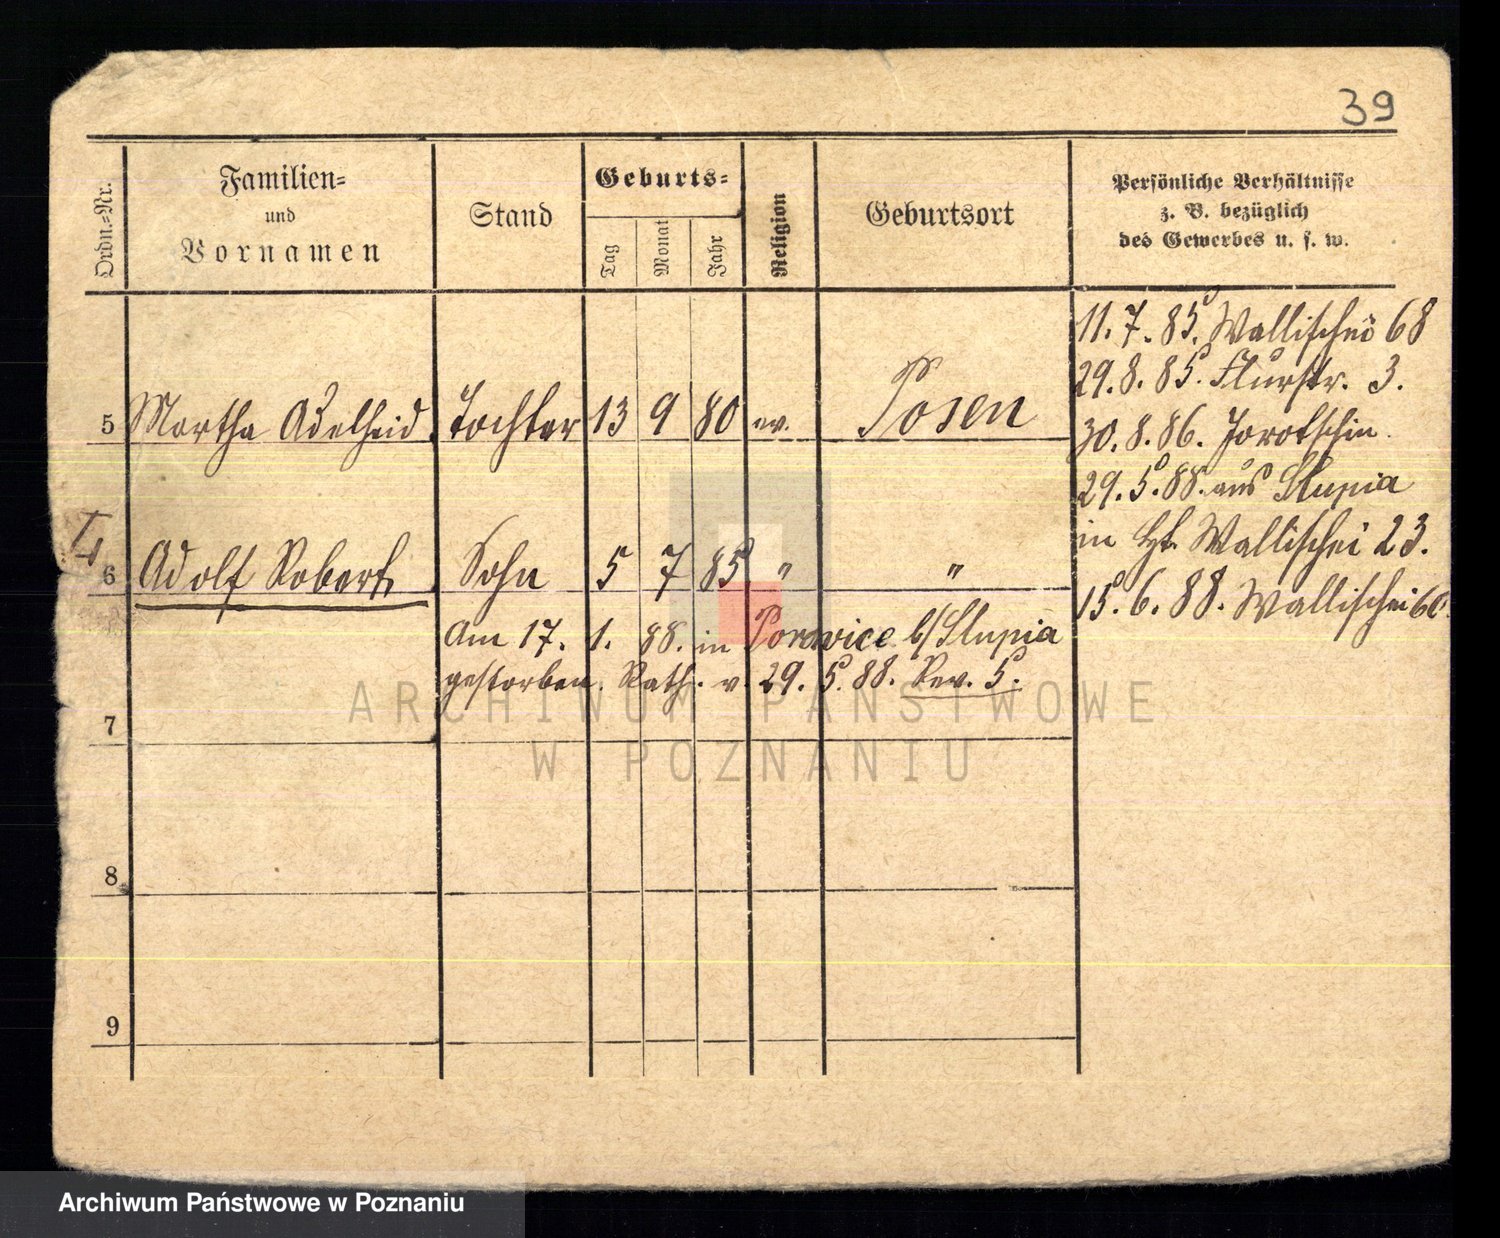 39
Ordn.=Nr.
Familien=
und
Vornamen
Stand
Geburts=
Tag
Monat
Jahr
Religion
Geburtsort
Persönliche Verhältnisse
z. B. bezüglich
des Gewerbes u. s. w.
5 Martha Adelheid Tochter 13 9 80 ev. Posen
11. 7. 85. Wallischei 68
29. 8. 85. Flurstr. 3.
30. 8. 86. Jarotschin.
29. 5. 88. aus Slupia
in Wallischei 23.
15. 6. 88. Wallischei
6 Adolf Robert Sohn 5 7 85 " "
Am 17. 1. 88. in b/Slupia
gestorben. v. 29. 5. 88. Rev. 5.
7
8
9
ARCHIWUM PAŃSTWOWE
W POZNANIU
Archiwum Państwowe w Poznaniu